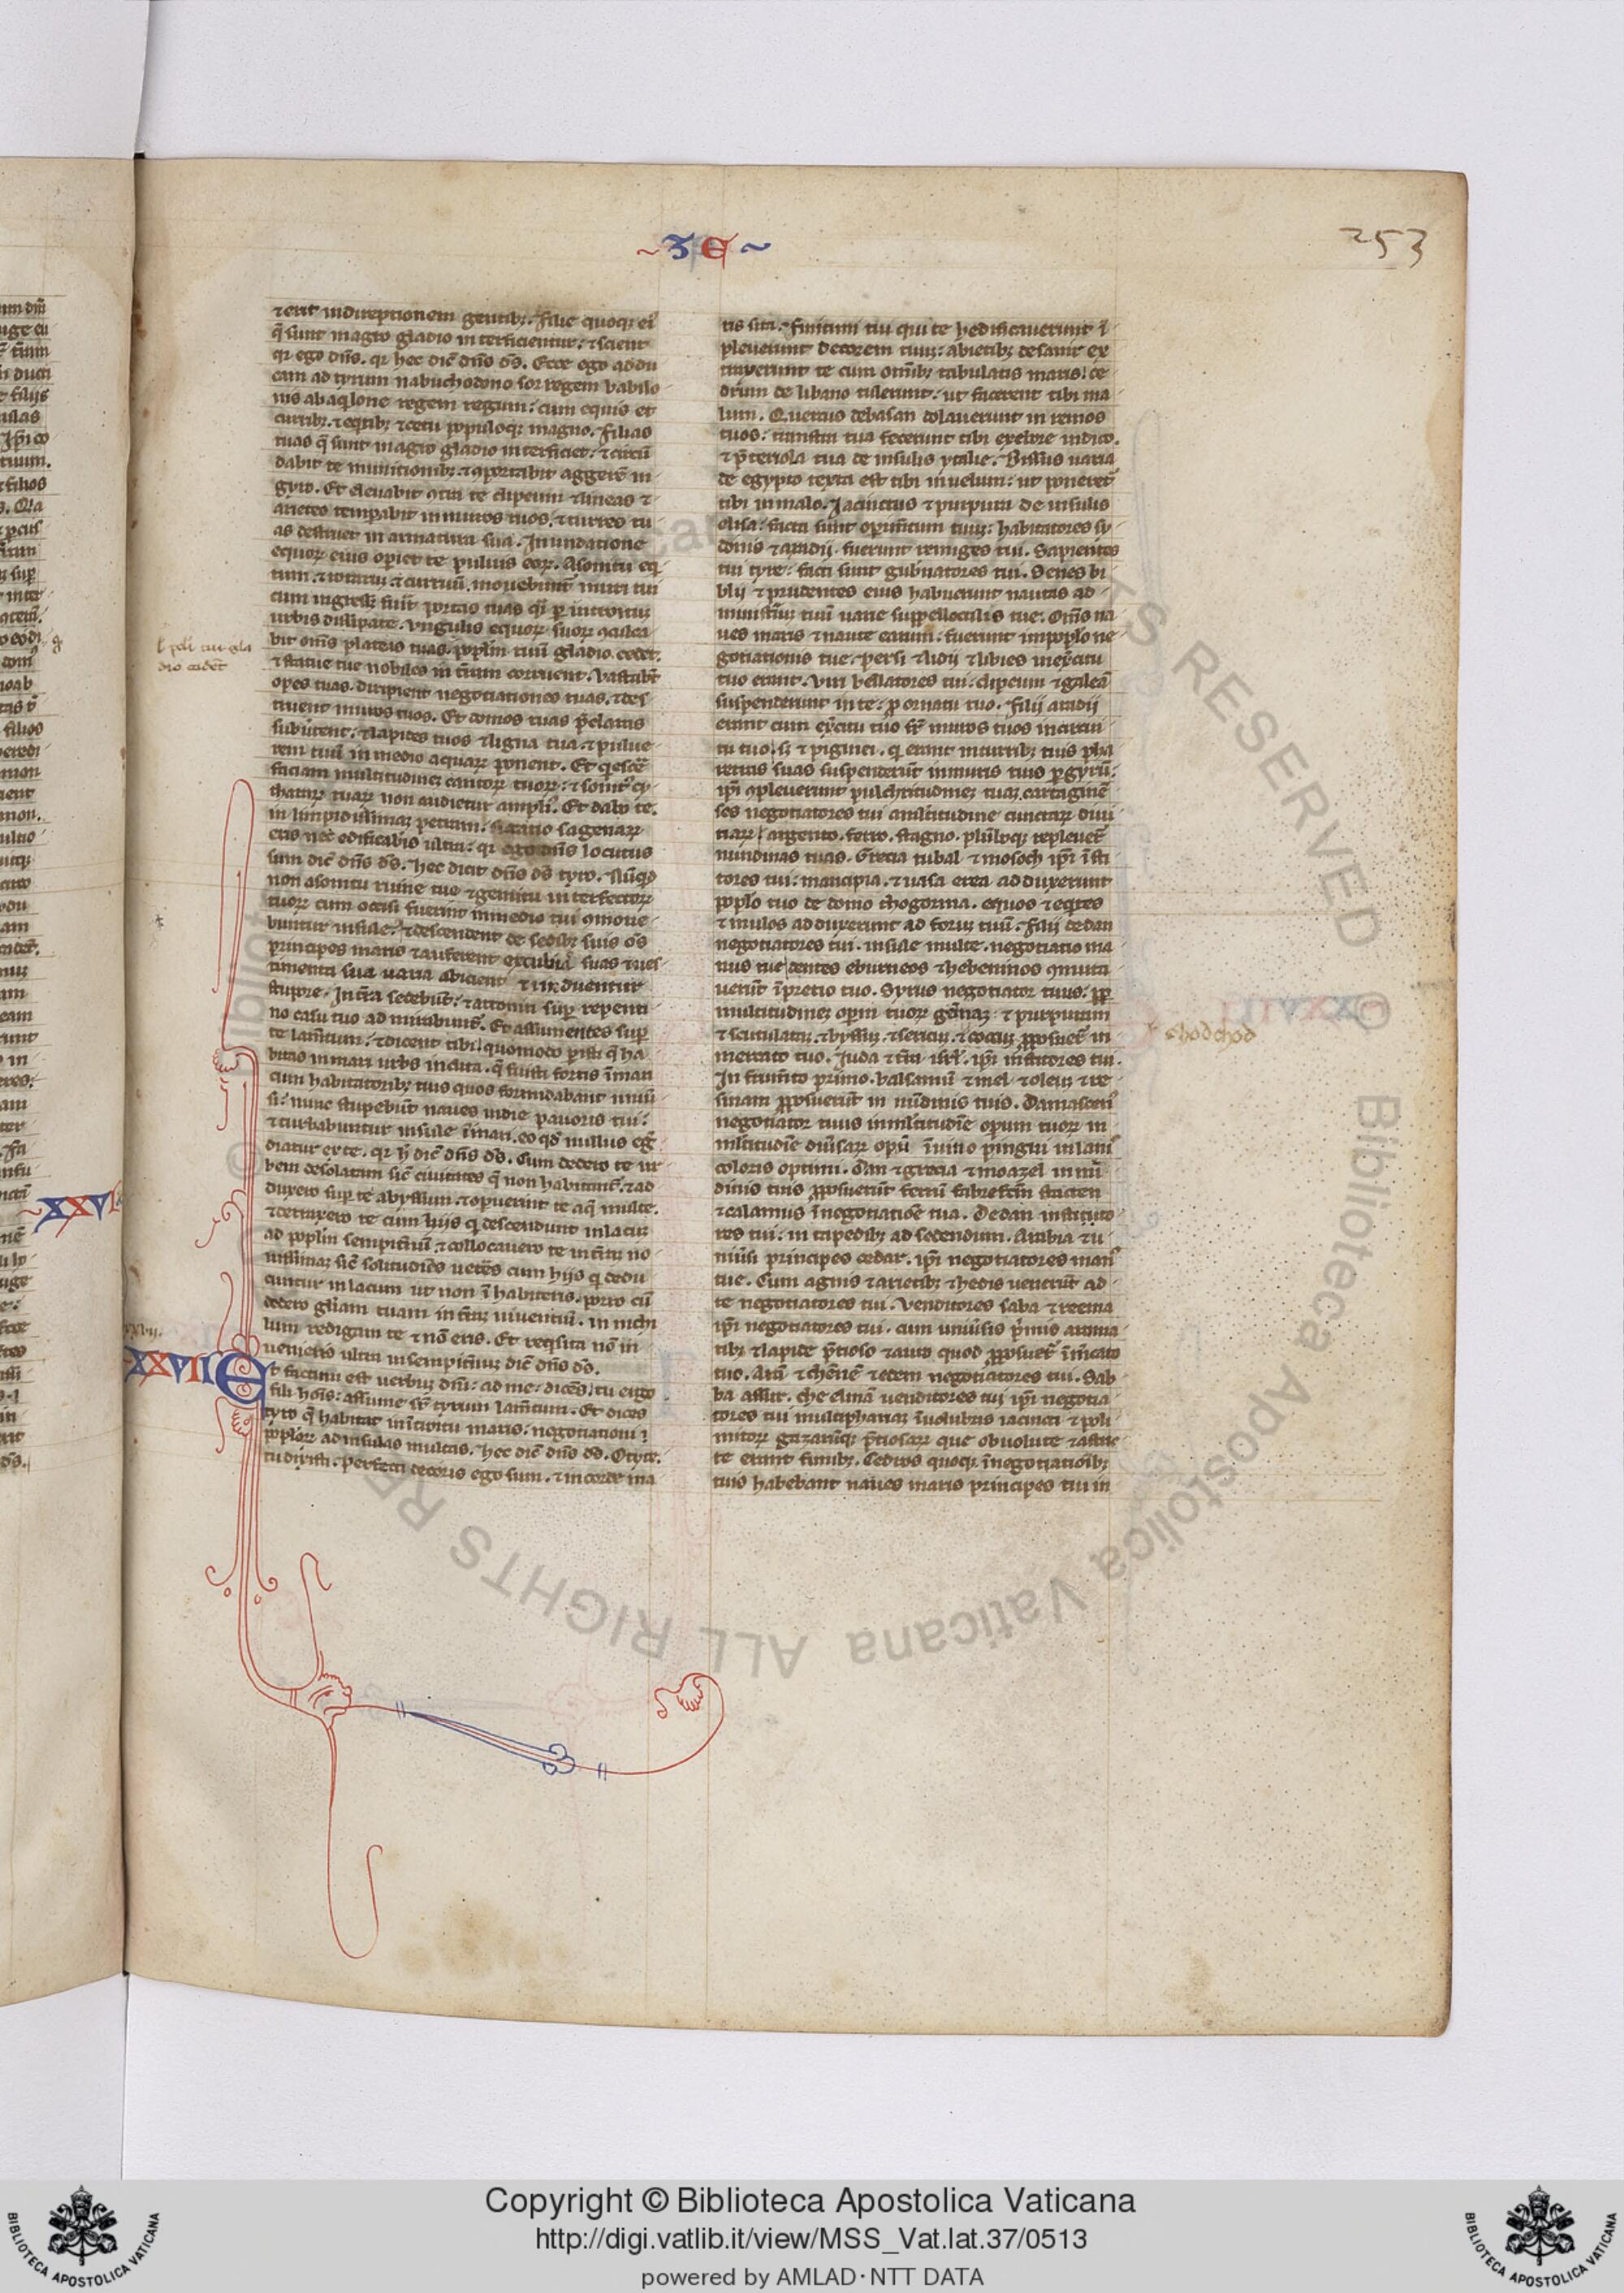 ~ Z E ~
253
⁊ erit in direptionem gentibꝫ. Filie quoqꝫ eiꝰ
q̄ sunt in agro gladio interficientur: ⁊ scient
qꝛ ego dn̄s. qꝛ hec dic̄ dn̄s ds̄. Ecce ego addu
cam ad tyrum nabuchodonosor regem babilo
nis ab aq̇lone regem regum: cum equis et
curribꝫ. ⁊ eqͥtibꝫ ⁊ cetu populoqꝫ magno. Filias
tuas q̄ sunt in agro gladio interficiet: ⁊ circū
dabit te munitionibꝫ. ⁊ ꝯportabit aggerē in
gyro. Et eleuabit ꝯtra te clipeum ⁊ lineas ⁊
arietes temꝑabit in muros tuos. ⁊ turres tu
as destruet in armatura sua. Inundatione
equoꝝ eius operiet te puluis eoꝝ. A sonitu eqͥ
tum. ⁊ rotaruꝫ ⁊ curruū. mouebunt᷑ muri tui
cum ingressꝰ fuīt portas tuas qͣi ꝑ introituꝫ
urbis dissipate. Vngulis equoꝝ suoꝝ ꝯculca
bit om̄s plateas tuas. popl̄m tuū gladio cedet.
⁊ statue tue nobiles in t̄ram corruent. Vastabūt
opes tuas. diripient negotiationes tuas. ⁊ des
truent muros tuos. Et domos tuas p̄claras
subūtent. ⁊ lapides tuos ⁊ ligna tua ⁊ pulue
rem tuū in medio aquaꝝ ponent. Et qͥescē
faciam multitudineꝫ cantoꝝ tuoꝝ: ⁊ sonitꝰ cy
tharaꝝ tuaꝝ non audietur ampliꝰ. Et dabo te
in limpidissimaꝫ petram. siccatio sagenaꝝ
eris nec edificabis ultra: qꝛ ego dn̄s locutus
sum dic̄ dn̄s ds̄. Hec dicit dn̄s ds̄ tyro. Nūqͥd
non a sonitu ruine tue ⁊ gemitu interfectoꝝ
tuoꝝ cum occisi fuerint in medio tui ꝯmoue
buntur insule. ⁊ descendent de sedibꝫ suis om̄s
principes maris ⁊ auferent exubias suas ⁊ ues
timenta sua uaria abicient ⁊ induentur
stupore. In t̄ra sedebūt: ⁊ attoniti suꝑ repenti
no casu tuo admirabunt᷑. Et assumentes suꝑ
te lam̄tum. ⁊ dicent tibi. quomodo ꝑisti q̄ ha
bitas in mari urbs inclita. q̄ fuisti fortis ī mari
cum habitatoribꝫ tuis quos formidabant uniū
si: nunc stupebūt naues in die pauoris tui:
⁊ turbabuntur insule ī mari. eo qd̄ nullus egͥ
diatur ex te. qꝛ h̄ dic̄ dn̄s ds̄. Cum dedero te ur
bem desolatam sic̄ ciuitates q̄ non habitant᷑. ⁊ ad
duxero suꝑ te abyssum. ⁊ operuerint te aq̄ multe.
⁊ detraxero te cum hijs qͥ descendunt in lacuꝫ
ad popl̄m sempit̄nū ⁊ collocauero te in t̄ra no
uissimaꝫ sic̄ solitudīes ueteres cum hijs qͥ dedu
cuntur in lacum ut non ī habiteris. porro cū
dedero gl̄iam tuam in t̄ra uiuentiū. in nichi
lum redigam te ⁊ nō eris. Et reqͥsita nō in
uenieris ultra in sempit̄nuꝫ dic̄ dn̄s ds̄.
XXVII
Et factum est uerbuꝫ dn̄i: ad me: dicēs. tu ergo
fili hoīs: assume suꝑ tyrum lam̄tum. Et dices
tyro q̄ habitat in ītroitu maris: negotiationi
poploꝝ ad insulas multas. Hec dic̄ dn̄s ds̄. O tyre.
tu dixisti. Perfecti decoris ego sum. ⁊ in corde ma
ris sita. Finitimi tui qui te hedificauerunt ī
pleuerunt decorem tuuꝫ: abietibꝫ de sanir ex
truxerunt te cum om̄ibꝫ tabulatis maris: ce
drum de libano tulerunt: ut facerent tibi ma
lum. Quercus de basan dolauerunt in remos
tuos: transtra tua fecerunt tibi ex ebore indico.
⁊ p̄toriola tua de insulis ytalie. Bissus uaria
de egypto texta est tibi in uelum: ut poneret᷑
tibi in malo. Iacinctus ⁊ purpura de insulis
elisa: facta sunt operim̄tum tuuꝫ: habitatores sy
donis ⁊ aradij. fuerunt remiges tui. Sapientes
tui tyre: facti sunt gub̄natores tui. Senes bi
blij ⁊ prudentes eius habuerunt nautas ad
ministeriū tuū uarie suppellectilis tue. Om̄s na
ues maris ⁊ naute earum: fuerunt in poplo ne
gotiationis tue. Persi ⁊ lidij ⁊ libies in exercitu
tuo erant. Viri bellatores tui: clipeum ⁊ galeā
suspenderunt in te: ꝓ ornatu tuo. Filij aradij
erant cum exercitu tuo suꝑ muros tuos in circui
tu tuo: sꝫ ⁊ pigmei. qͥ erant in turribꝫ tuis pha
retras suas suspenderūt in muris tuis ꝑ gyrū:
ip̄i ꝯpleuerunt pulchritudineꝫ tuaꝫ. cartaginē
ses negotiatores tui a multitudine cunctaꝝ diui
tiaꝝ argento. ferro. stagno. plūboqꝫ repleuerūt
nundinas tuas. Grecia tubal ⁊ mosoch ip̄i īsti
tores tui: mancipia. ⁊ uasa erea adduxerunt
poplo tuo de domo thogorma. equos ⁊ eqͥtes
⁊ mulos adduxerunt ad forum tuū. Filij dedan
negotiatores tui. insule multe. negotiatio ma
nus tue dentes eburneos ⁊ hebeninos ꝯmuta
uerūt ī pretio tuo. Syrus negotiator tuus: ꝓpt᷑
multitudineꝫ operum tuoꝝ gēmaꝫ ⁊ purpuram
⁊ scutulataꝫ ⁊ byssuꝫ ⁊ sericuꝫ. ⁊ coccuꝫ ꝓposuer̄t in
mercato tuo. Iuda ⁊ t̄ra isrl̄. ip̄i institores tui.
In frum̄to primo. balsamū ⁊ mel ⁊ oleuꝫ ⁊ re
sinam ꝓposuerūt in nūdinis tuis. Damascenꝰ
negotiator tuus in ml̄titudīe operum tuoꝝ in
ml̄titudīe diūsaꝝ opū ī uino pingui in lanis
coloris optimi. Dan ⁊ grecia ⁊ moazel in nū
dinis tuis ꝓposuerūt ferrū fabrefc̄m stacten
⁊ calamus ī negotiatiōe tua. Dedan institito
res tui: in tapedibꝫ ad sedendum. Arabia ⁊ u
niūsi principes cedar. ip̄i negotiatores manꝰ
tue. Cum agnis ⁊ arietibꝫ ⁊ hedis uenerūt ad
te negotiatores tui. Venditores saba ⁊ reema
ip̄i negotiatores tui. cum uniūsis p̄mis aroma
tibꝫ ⁊ lapide p̄cioso ⁊ auro quod ꝓposuer̄t ī mcato
tuo. Arā ⁊ chenne ⁊ eden negotiatores tui. Sab
ba assur. chelmā uenditores tui ip̄i negotia
tores tui multiphariaꝫ īuolucris iacincti ⁊ poli
mitoꝝ gazarūqꝫ p̄ciosaꝝ que obuolute ⁊ astric
te erant funibꝫ. Cedros quoqꝫ ī negotiatiōibꝫ
tuis habebant naues maris principes tui in
chodchod
Copyright © Biblioteca Apostolica Vaticana
http://digi.vatlib.it/view/MSS_Vat.lat.37/0513
powered by AMLAD·NTT DATA
BIBLIOTECA APOSTOLICA VATICANA
BIBLIOTECA APOSTOLICA VATICANA